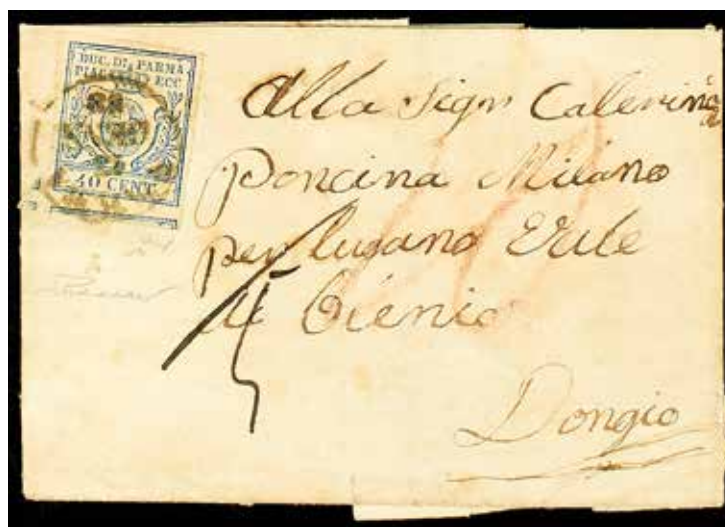 DUC. DI PARMA
PIACENZA ECC
40 CENT.
Alla Sign Caterina
Poncina Milano
per lugano
di
Dongio